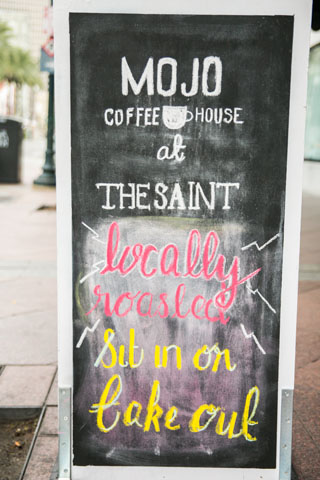 MOJO
COFFEE HOUSE
at
THE SAINT
locally
roasted
Sit in or
take out